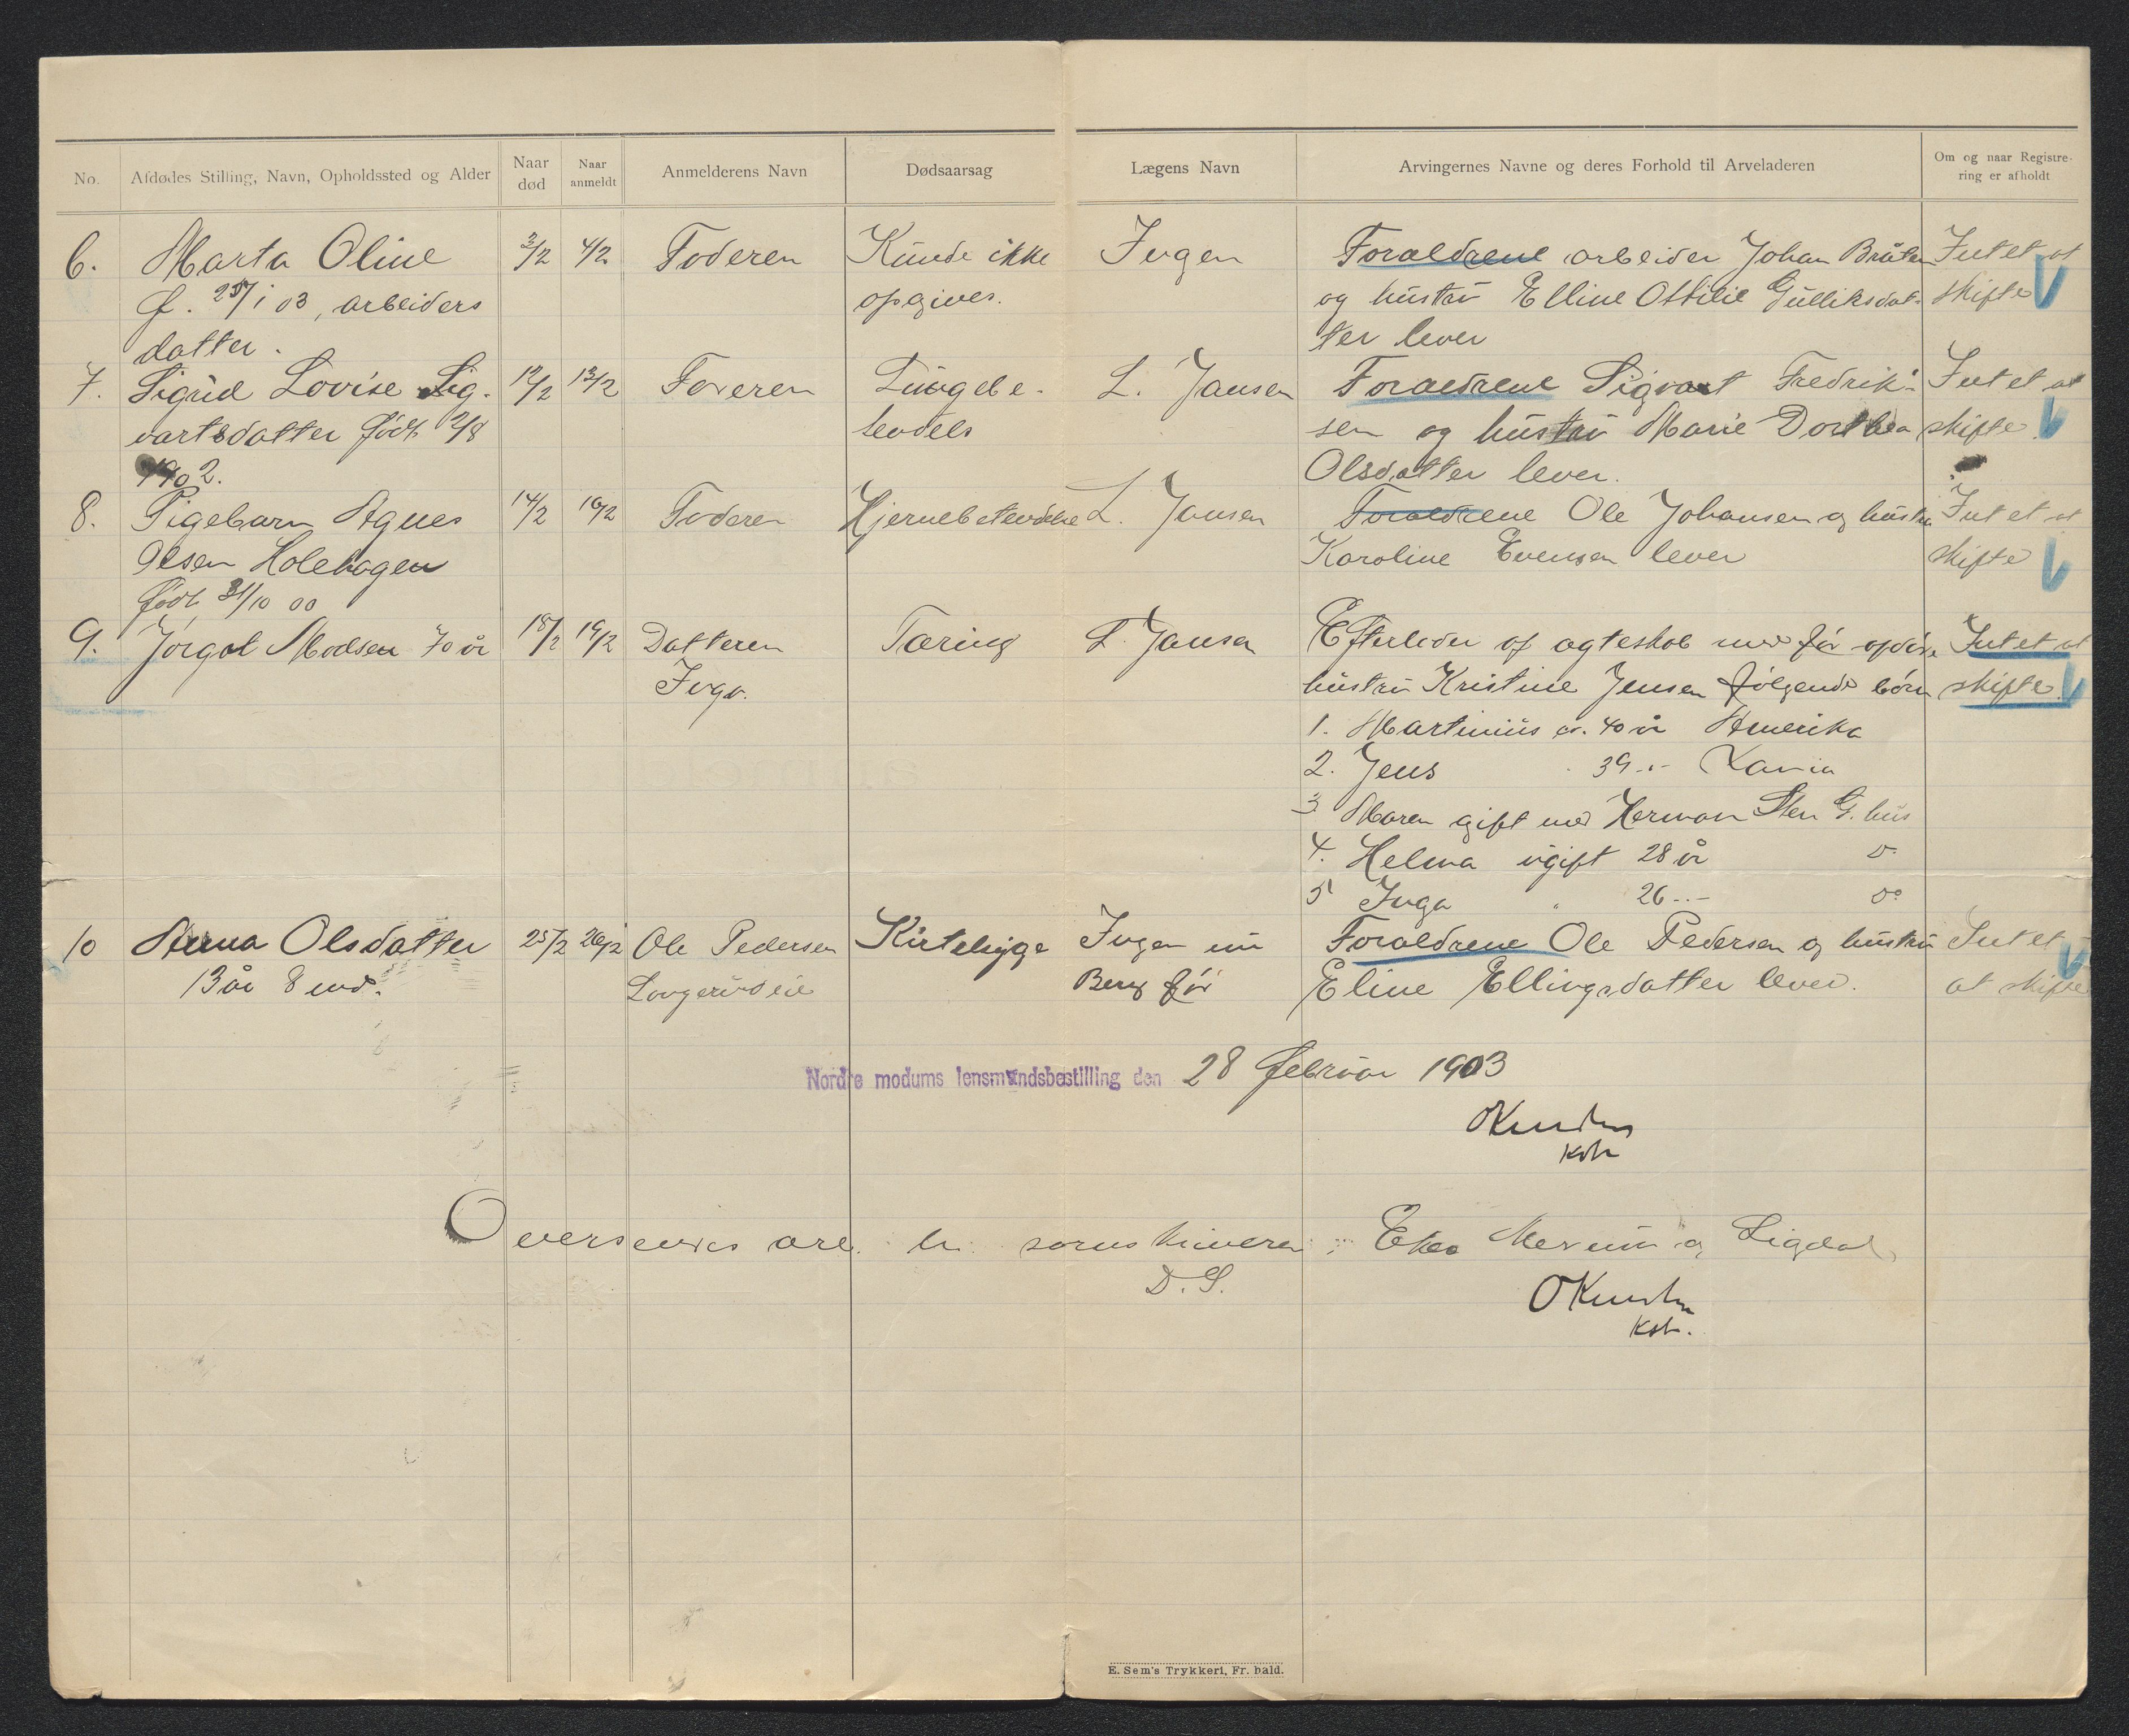 No.
Afdødes Stilling, Navn, Opholdssted og Alder
Naar død
Naar anmeldt
Anmelderens Navn
Dødsaarsag
Lægens Navn
Arvingernes Navne og deres Forhold til Arveladeren
Om og naar Registrering er afholdt
6. Marta Oline 3/2 4/2 Faderen Kunde ikke Ingen Forældrene arbeider Johan Bråten Intet at
f. 25/1 03, arbeiders opgives. og hustru Elline Ottilie Gulliksdat- skifte
datter. ter lever
7. Sigrid Lovise Sig- 12/2 13/2 Faderen Lungebe- L. Jansen Forældrene Sigvart Fredrik- Intet at
vartsdatter født 2/8 tendels sen og hustru Marie Dorthea skifte.
1902. Olsdatter lever.
8. Pigebarn Agnes 14/2 16/2 Faderen Hjernebetendelse L. Jansen Forældrene Ole Johansen og hustru Intet at
Olsen Holehagen Karoline Evensen lever skifte
født 31/10 00
9. Jörgol Madsen 70 år 18/2 19/2 Datteren Tæring L. Jansen Efterlader af ægteskab med før afdøde Intet at
Inga. hustru Kristine Jensen følgende börn skifte.
1. Martinius ca. 40 år Amerika
2. Jens 39 -"- Xania
3 Maren gift med Herman Sten G. hus
4. Helma ugift 28 år do
5 Inga " 26 -"- do
10 Anna Olsdatter 25/2 26/2 Ole Pedersen Kirtelsyge Ingen nu Forældrene Ole Pedersen og hustru Intet
13 år 8 md. Berg för Eline Ellingsdatter lever. at skifte
Nordre modums lensmandsbestilling den 28 februar 1903
OKnudsen
Kst.
Oversendes ærb. hr. sorenskriveren i Eker Modum og Sigdal
D. S.
OKnudsen
Kst.
E. Sem's Trykkeri, Fr. hald.